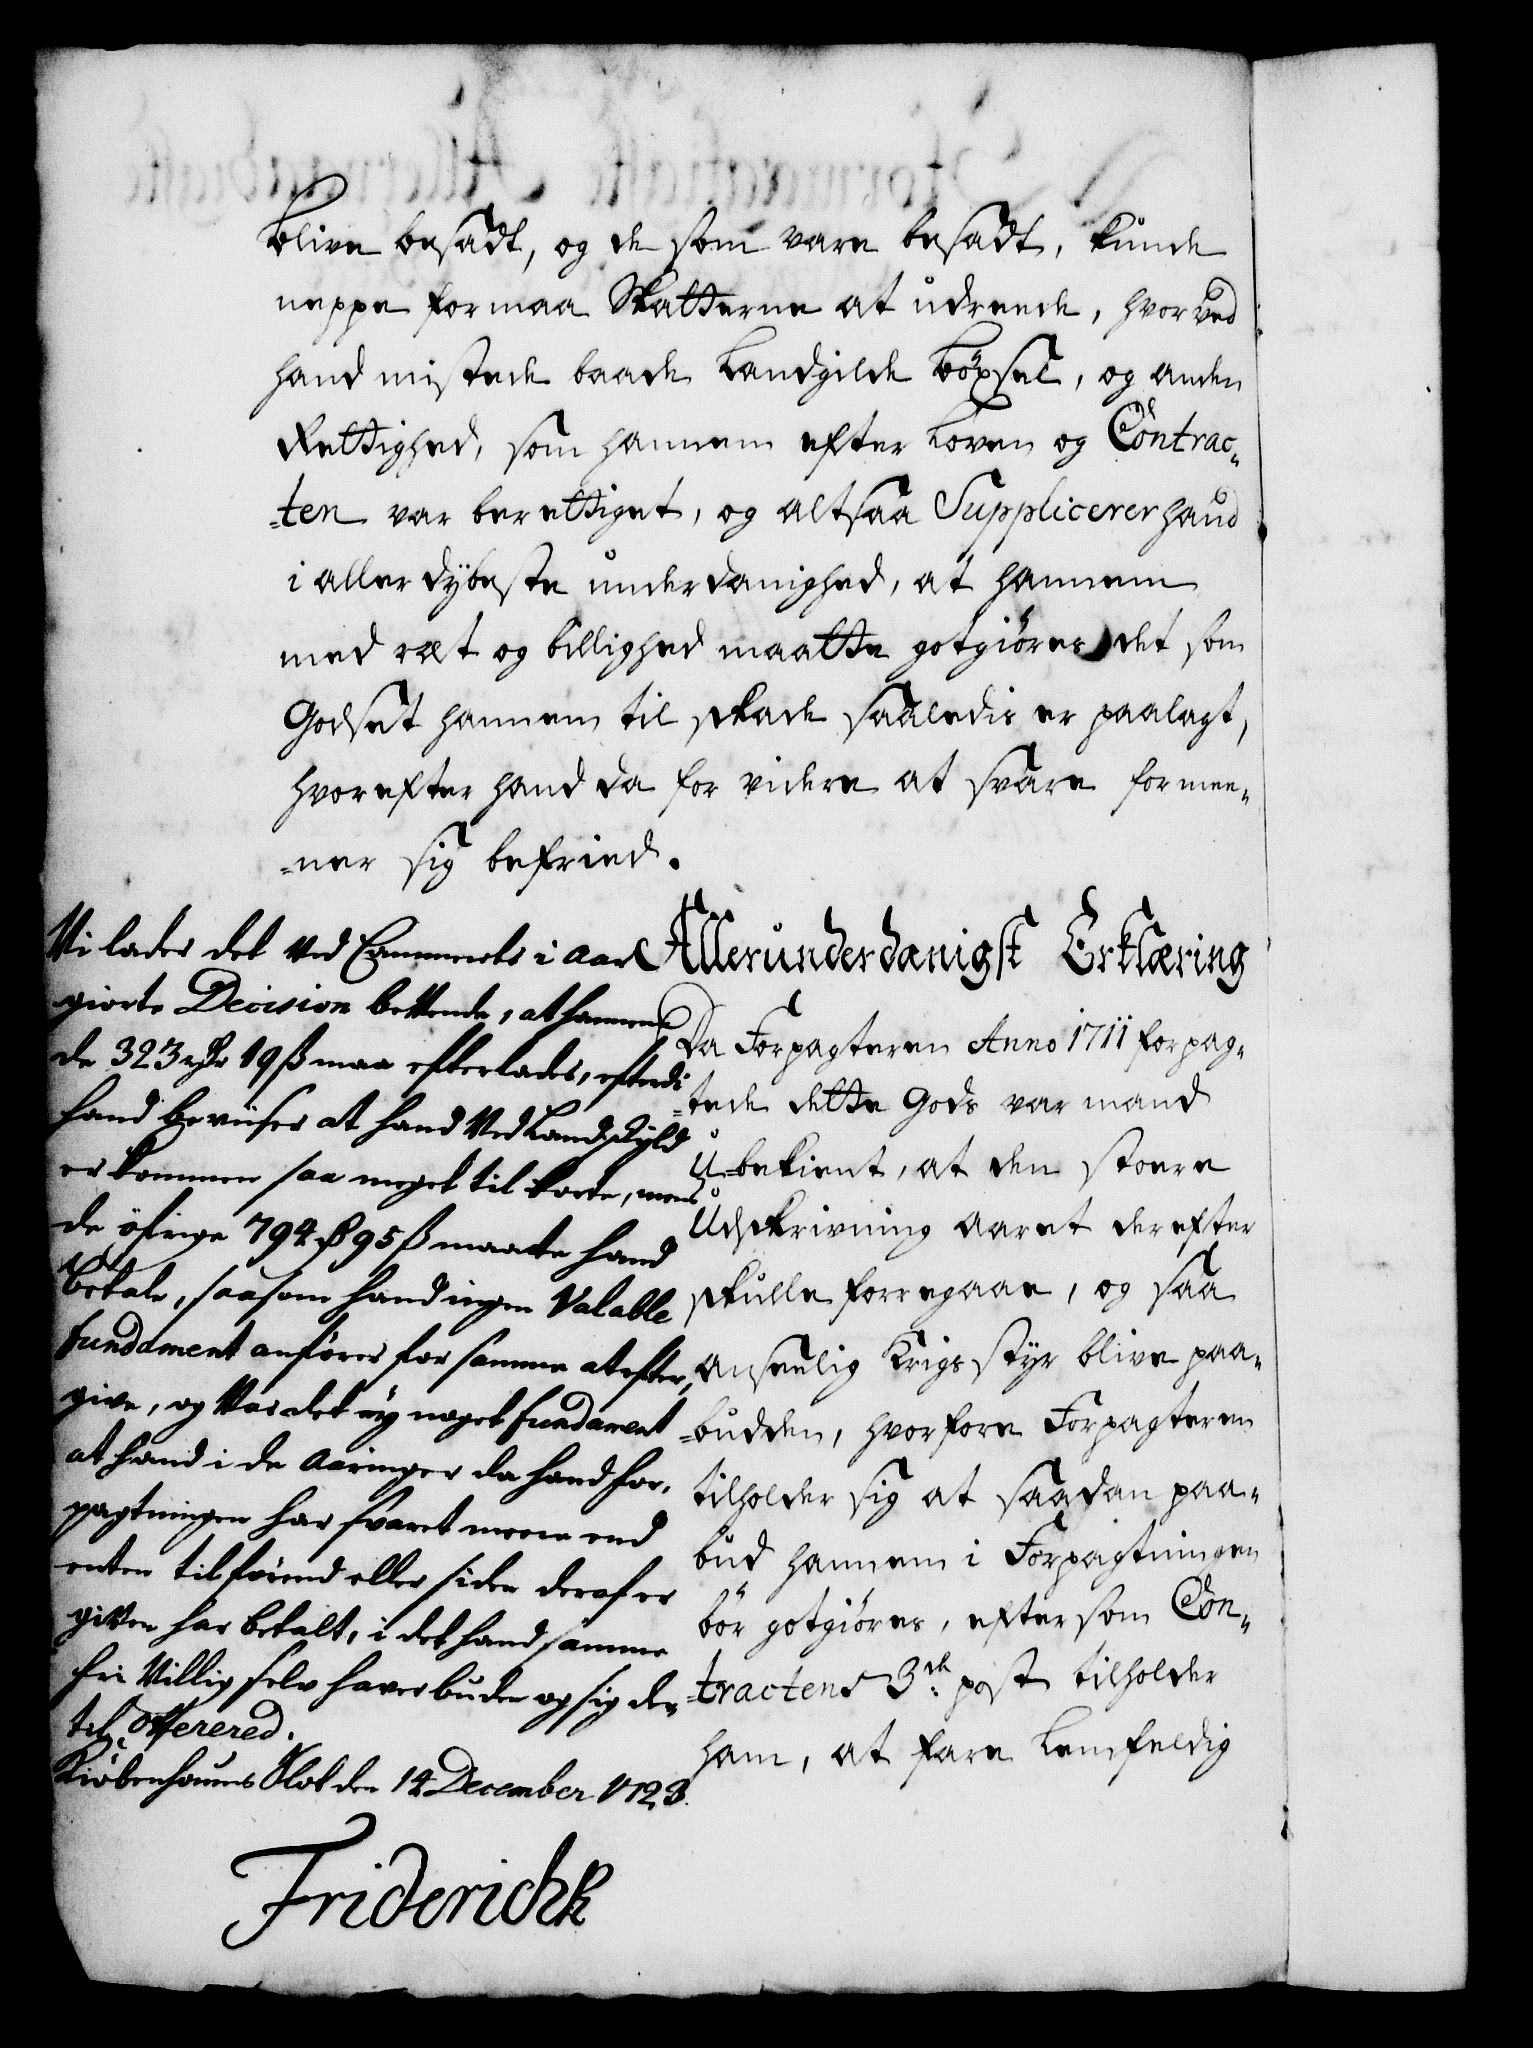 blive besadt, og de som vare besadt, kunde
neppe formaa Skatterne at udreede, hvor ved
hand mistede baade Landgilde Böxsel, og anden
Rettighed, som hannem efter Loven og Contrac-
-ten var berettiget, og altsaa Supplicerer hand
i aller dybeste underdanighed, at hannem
med ræt og billighed maatte gotgiöres det som
Godset hannem til skade saaledis er paalagt,
hvorefter hand da for videre at svare formee-
-ner sig befried.
Allerunderdanigst Erklæring
Da Forpagteren Anno 1711 forpag-
-tede dette Gods var mand
U-bekient, at den stoere
Udskrivning aaret derefter
skulle forregaae, og saa
anseelig Krigs styr blive paa-
-budden, hvorfore Forpagteren
tilholder sig at saadan paa-
bud hannem i Forpagtningen
bör gotgiöres, eftersom Con-
-tractens 3de post tilholder
ham, at fare Lemfeldig
Vi lader det ved Cammerets i aar
giorte Decision beroende, at hannem
de 323 rdr 19 ß maa efterlades, efterdi
hand beviiser at hand ved Landskyld
er kommen saa meget til korte, mens
de öfrige 794 rd 95 ß maatte hand
betale, saasom hand ingen Valable
fundament anfører for samme at efter-
give, og var det ey noget fundament
at hand i de aaringer da hand for-
pagtningen har svaret meere end
enten tilforend eller siden deraf er
given har betalt, i det hand samme
fri villig selv haver buden og sig der-
til offerered.
Kiöbenhauns Slot den 14 December 1723.
Friderich R